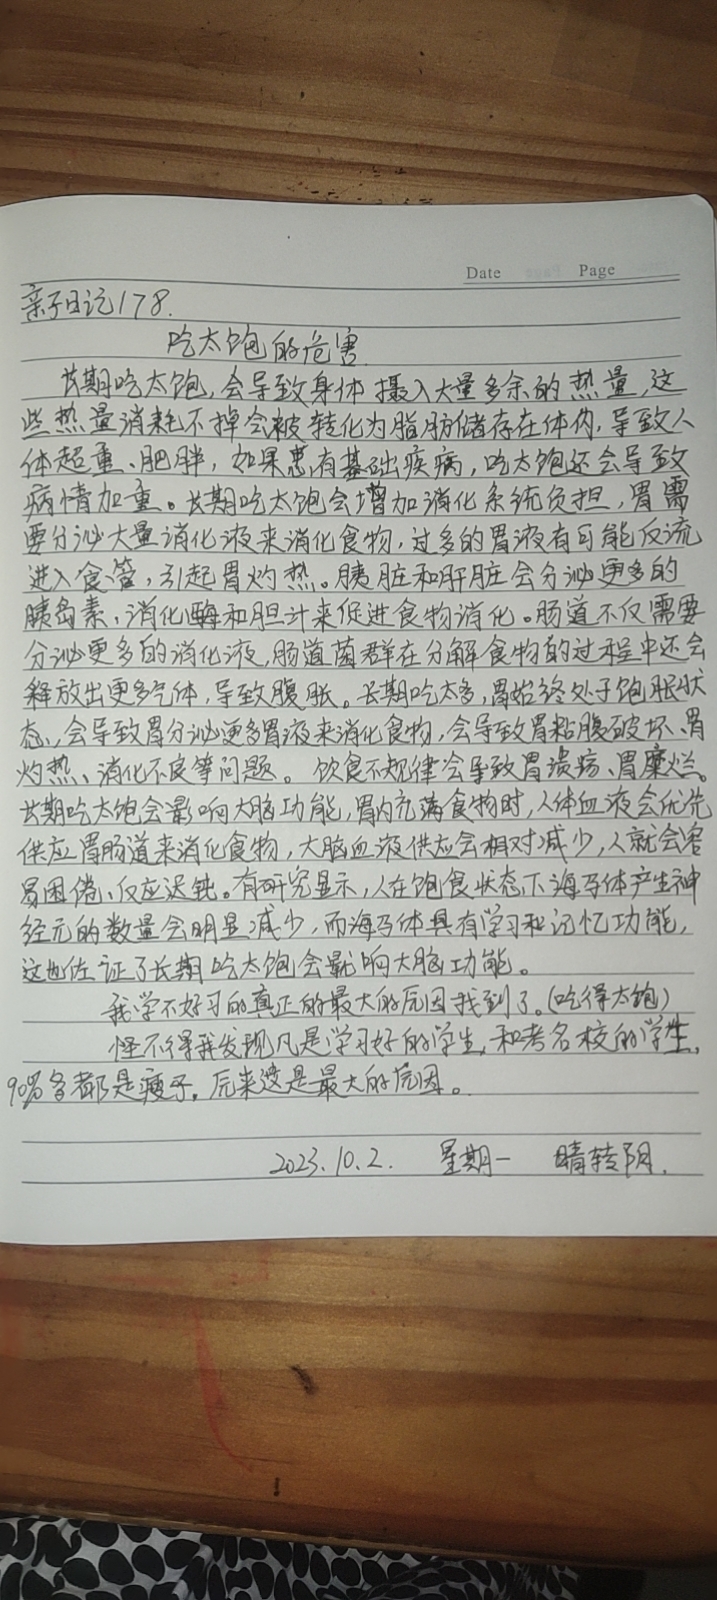 Date Page
亲子日记178.
吃太饱的危害.
长期吃太饱,会导致身体摄入大量多余的热量,这
些热量消耗不掉会被转化为脂肪储存在体内,导致人
体超重、肥胖,如果患有基础疾病,吃太饱还会导致
病情加重。长期吃太饱会增加消化系统负担,胃需
要分泌大量消化液来消化食物,过多的胃液有可能反流
进入食管,引起胃灼热。胰脏和肝脏会分泌更多的
胰岛素、消化酶和胆汁来促进食物消化。肠道不仅需要
分泌更多的消化液,肠道菌群在分解食物的过程中还会
释放出更多气体,导致腹胀。长期吃太多,胃始终处于饱胀状
态,会导致胃分泌更多胃液来消化食物,会导致胃粘膜破坏、胃
灼热、消化不良等问题。饮食不规律会导致胃溃疡、胃糜烂。
长期吃太饱会影响大脑功能,胃内充满食物时,人体血液会优先
供应胃肠道来消化食物,大脑血液供应会相对减少,人就会容
易困倦、仅应迟钝。有研究显示,人在饱食状态下海马体产生神
经元的数量会明显减少,而海马体具有学习和记忆功能,
这也佐证了长期吃太饱会影响大脑功能。
我学不好习的真正的最大的原因找到了。(吃得太饱)
怪不得我发现凡是学习好的学生,和考名校的学生,
90%多都是瘦子,原来这是最大的原因。
2023.10.2. 星期一 晴转阴.